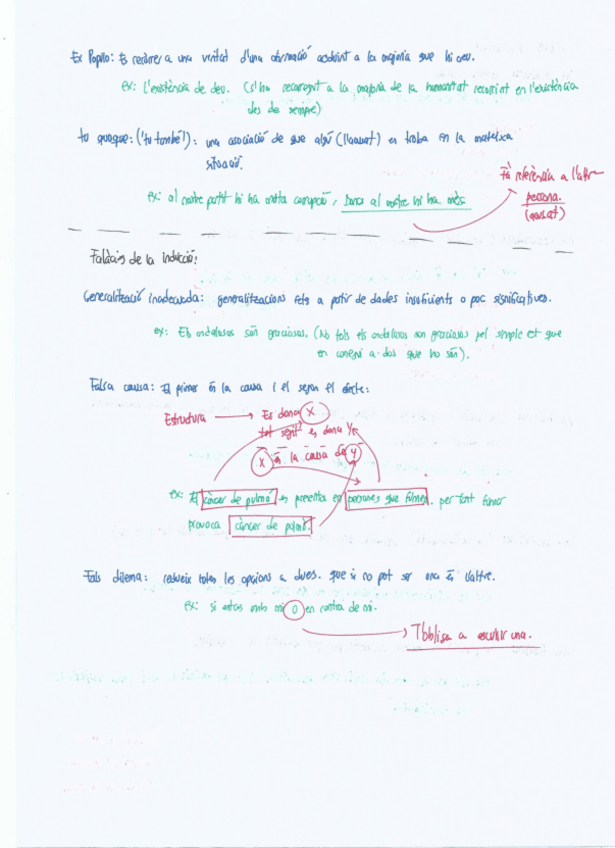 Ex Populo: Es recórrer a una veritat d'una afirmació acudint a la majoria que hi creu.
ex: L'existència de deu. (S'ha recorregut a la majoria de la humanitat recorrint en l'existència
des de sempre)
tu quoque: ('tu també!'): una asociació de que algú (l'acusat) es troba en la mateixa
situació.
Fà referència a l'altre
persona.
(acusat)
ex: al nostre partit hi ha molta corrupció, Doncs al vostre hi ha més
Falàcies de la inducció:
Generalització inadecuada: generalitzacions fets a partir de dades insuficients o poc significatives.
ex: Els andalusos són graciosos. (No tots els andalusos son graciosos pel simple et que
en coneixi a dos que ho són).
Falsa causa: El primer és la causa i el segon el efecte:
Estructura → Es dona X
tot seguit es dona Y
X és la causa de Y
ex: El càncer de pulmó es presenta en persones que fumen. per tant fumar
provoca càncer de pulmó.
Fals dilema: redueix totes les opcions a dues. que si no pot ser una és l'altre.
ex: si estas amb mi o en contra de mi.
→ T'obliga a escollir una.